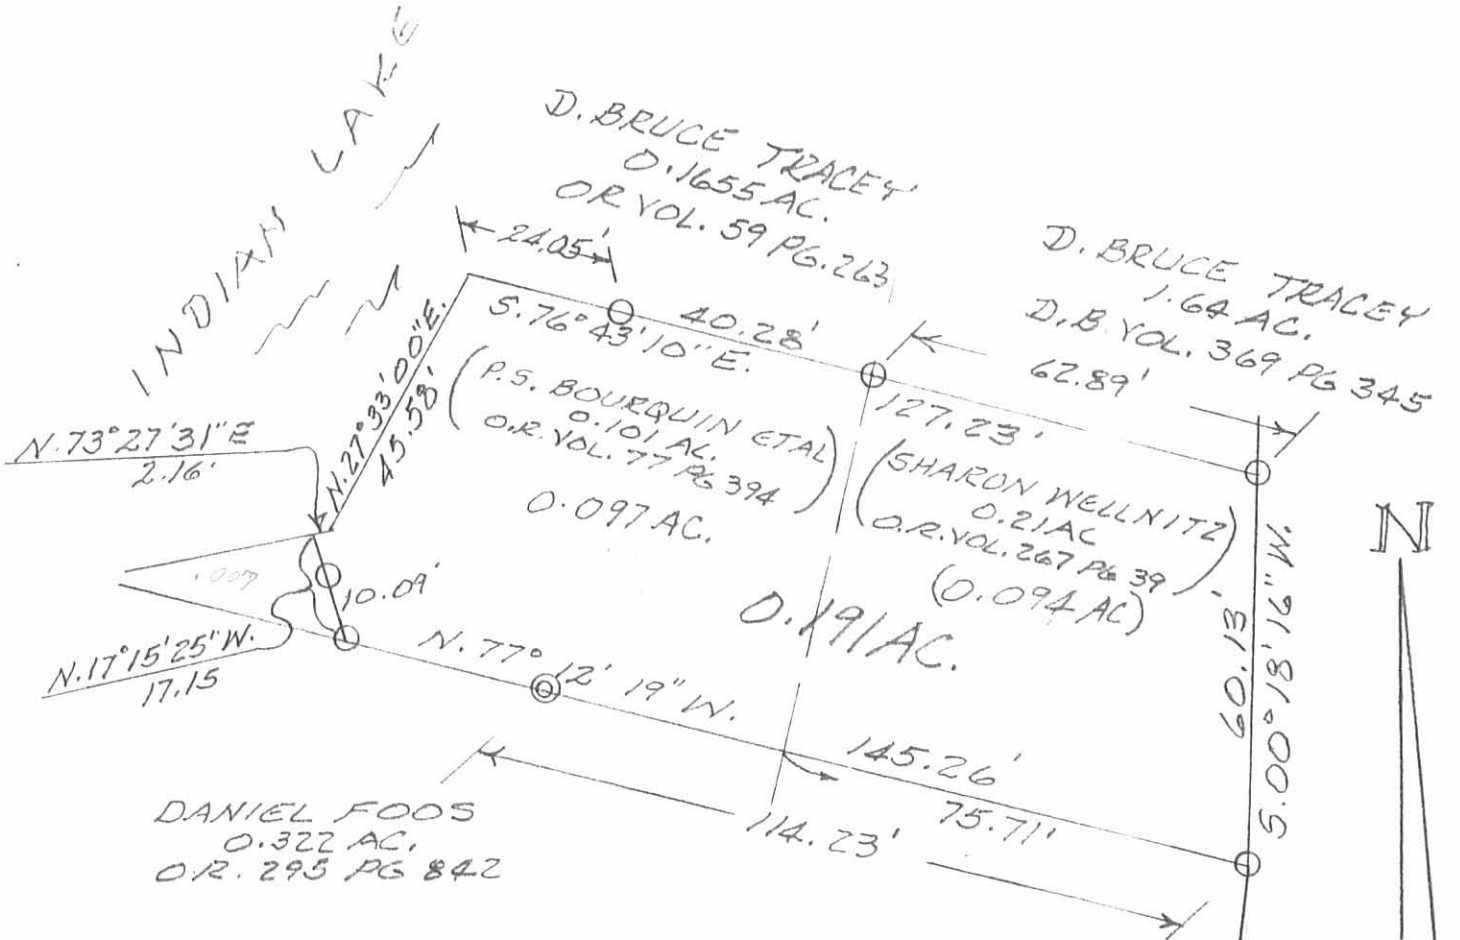 INDIAN LAKE
D. BRUCE TRACEY
0.1655 AC.
OR VOL. 59 PG. 263
D. BRUCE TRACEY
1.64 AC.
D.B. VOL. 369 PG 345
24.05'
S. 76° 43' 10" E.
40.28'
62.89'
127.23'
N. 27° 33' 00" E.
45.58'
(P.S. BOURQUIN ETAL)
0.101 AC.
O.R. VOL. 77 PG 394
0.097 AC.
(SHARON WELLNITZ)
0.21 AC
O.R. VOL. 267 PG 39
(0.094 AC)
N. 73° 27' 31" E
2.16'
.007
10.09'
N. 17° 15' 25" W.
17.15
N. 77° 12' 19" W.
0.191 AC.
60.13'
S. 00° 18' 16" W.
N
145.26'
75.71'
114.23'
DANIEL FOOS
0.322 AC.
O.R. 295 PG 842